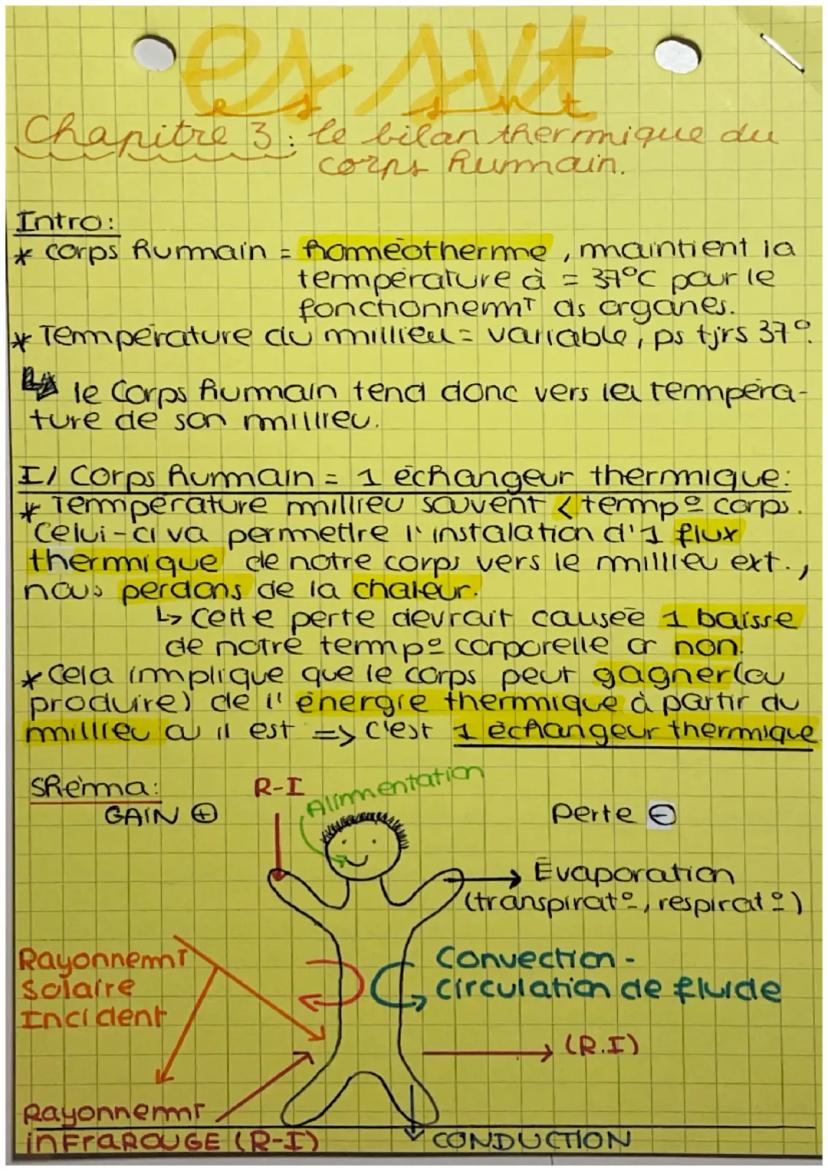 es svt
es svt
Chapitre 3: le bilan thermique du
corps humain.
Intro:
* corps humain = homéotherme, maintient la
température à = 37°C pour le
fonctionnemT ds organes.
* Température du millieu = variable, ps tjrs 37°.
↳ le corps humain tend donc vers la tempéra-
ture de son millieu.
I/ Corps humain = 1 échangeur thermique:
* Température millieu souvent < temp° corps.
Celui-ci va permettre l'instalation d'1 flux
thermique de notre corps vers le millieu ext.,
nous perdons de la chaleur.
↳ cette perte devrait causée 1 baisse
de notre temp° corporelle or non.
* Cela implique que le corps peut gagner (ou
produire) de l'énergie thermique à partir du
millieu où il est => c'est 1 échangeur thermique
Shéma:
R-I
Alimentation
GAIN +
Perte -
Évaporation
(transpirat°, respirat°)
Rayonnemt
Solaire
Incident
Convection -
circulation de fluide
(R.I)
Rayonnemt
inFRAROUGE (R-I)
CONDUCTION